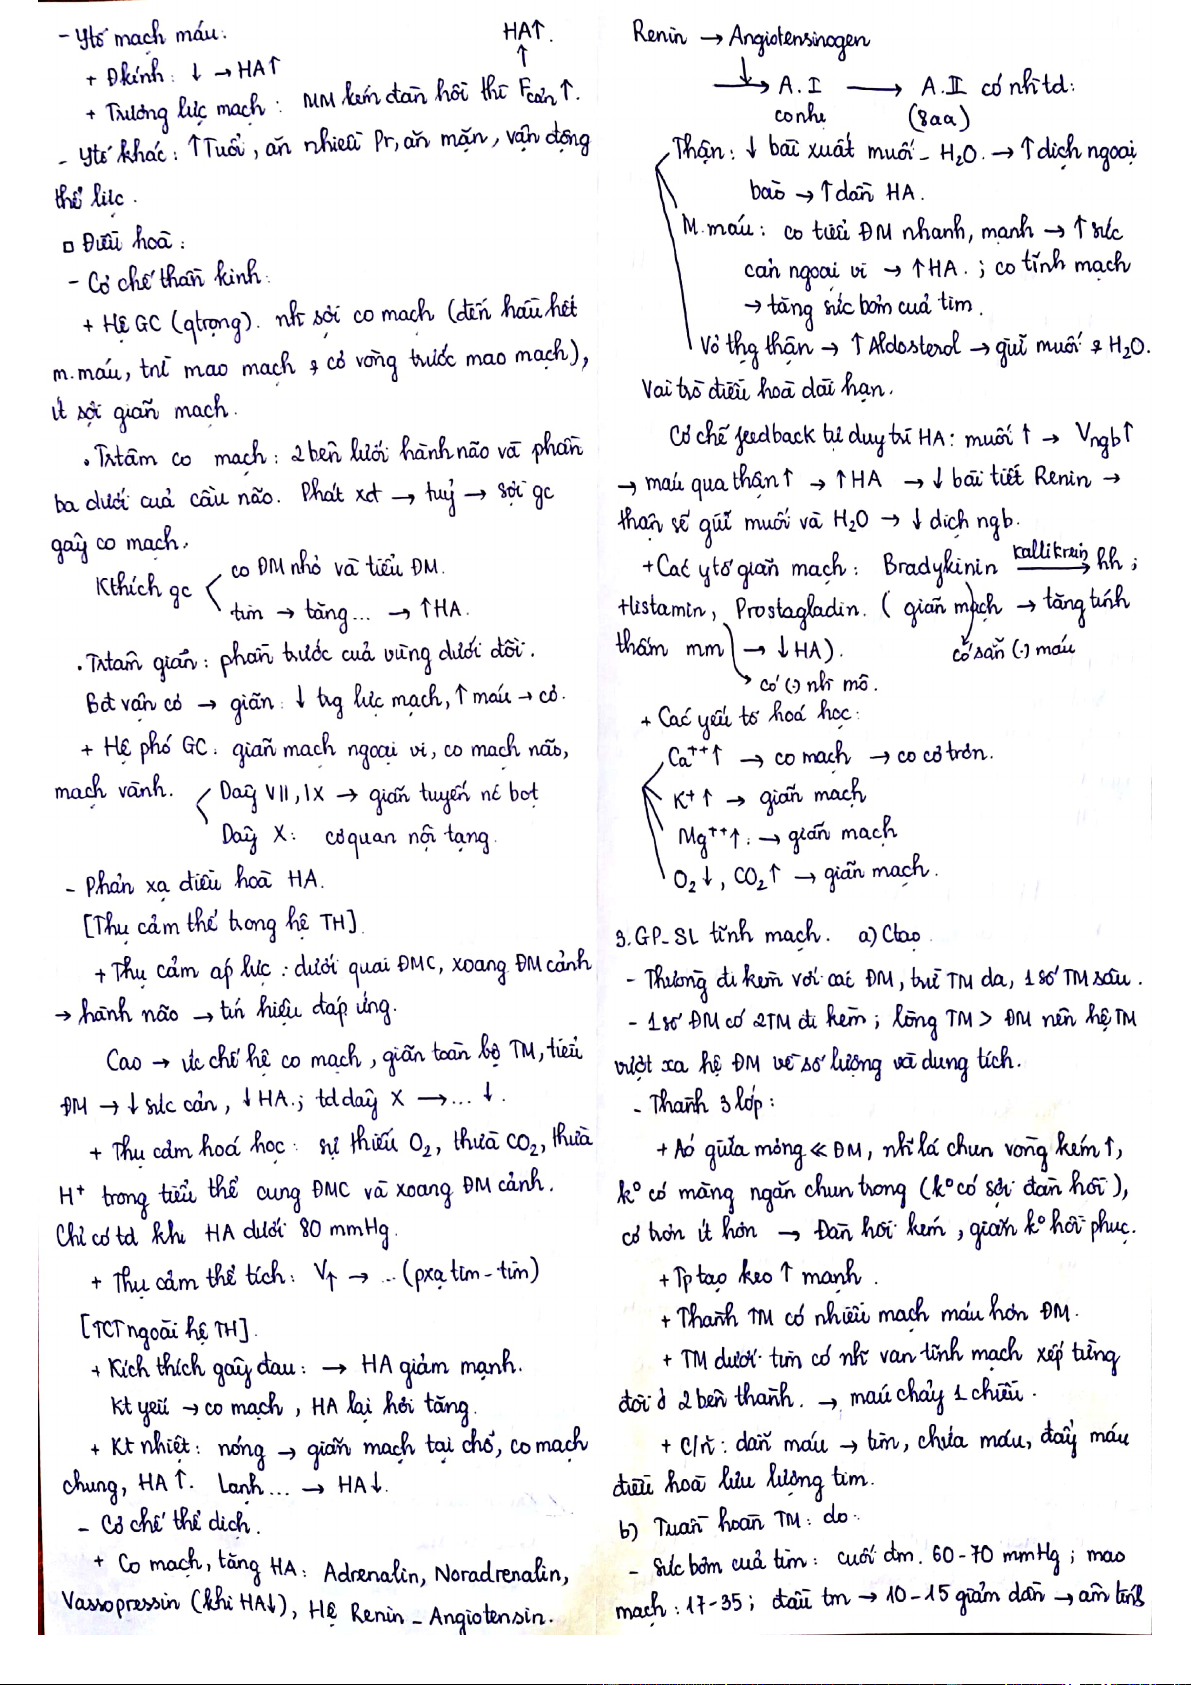 - Ytố mạch máu:
HA↑.
↑
+ Đkính: ↓ → HA↑
+ Trương lực mạch: MM kém đàn hồi thì Fcản↑.
- Ytố khác: ↑Tuổi, ăn nhiều Pr, ăn mặn, vận động
thể lực.
□ Điều hoà:
- Cơ chế thần kinh:
+ Hệ GC (qtrọng). nh sợi co mạch (đến hầu hết
m.máu, trừ mao mạch & cơ vòng trước mao mạch),
ít sợi giãn mạch.
. Trtâm co mạch: 2 bên lưới hành não và phần
ba dưới của cầu não. Phát xđ → tuỷ → sợi gc
gây co mạch.
Kthích gc
co ĐM nhỏ và tiểu ĐM.
tim → tăng... → ↑HA.
. Trtâm giãn: phần trước của vùng dưới đồi.
Bđt vận cơ → giãn: ↓ trg lực mạch, ↑ máu → cơ.
+ Hệ phó GC: giãn mạch ngoại vi, co mạch não,
mạch vành.
Dây VII, IX → giãn tuyến nc bọt
Dây X: cơ quan nội tạng.
- Phản xạ điều hoà HA.
[Thụ cảm thể trong hệ TH]
+ Thụ cảm áp lực: dưới quai ĐMC, xoang ĐM cảnh
→ hành não → tín hiệu đáp ứng.
Cao → ức chế hệ co mạch, giãn toàn bộ TM, tiểu
ĐM → ↓ sức cản, ↓ HA.; td dây X → ... ↓.
+ Thụ cảm hoá học: sự thiếu O2, thừa CO2, thừa
H+ trong tiểu thể cung ĐMC và xoang ĐM cảnh.
Chỉ có td khi HA dưới 80 mmHg.
+ Thụ cảm thể tích: V↑ → ... (pxạ tim - tim)
[TCT ngoài hệ TH].
+ Kích thích gây đau: → HA giảm mạnh.
Kt yếu → co mạch, HA lại hơi tăng.
+ Kt nhiệt: nóng → giãn mạch tại chỗ, co mạch
chung, HA↑. Lạnh... → HA↓.
- Cơ chế thể dịch.
+ Co mạch, tăng HA: Adrenalin, Noradrenalin,
Vassopressin (khi HA↓), Hệ Renin - Angiotensin.
Renin → Angiotensinogen
→ A.I → A.II có nh td:
(8aa)
Thận: ↓ bài xuất muối - H2O. → ↑ dịch ngoại
bào → ↑ dần HA.
M.máu: co tiểu ĐM nhanh, mạnh → ↑ sức
cản ngoại vi → ↑HA.; co tĩnh mạch
→ tăng sức bơm của tim.
Vỏ thg thận → ↑ Aldosterol → giữ muối & H2O.
Vai trò điều hoà dài hạn.
Cơ chế feedback tự duy trì HA: muối ↑ → Vngb↑
→ máu qua thận ↑ → ↑HA → ↓ bài tiết Renin →
thận sẽ giữ muối và H2O → ↓ dịch ngb.
+ Các ytố giãn mạch: Bradykinin kallikrein → hh;
Histamin, Prostagladin. (giãn mạch → tăng tính
thấm mm → ↓ HA).
có sẵn (.) máu
có (.) nh mô.
+ Các yếu tố hoá học:
Ca++↑ → co mạch → co cơ trơn.
K+↑ → giãn mạch
Mg++↑: → giãn mạch
O2↓, CO2↑ → giãn mạch.
3. GP - SL tĩnh mạch. a) Ctạo
- Thường đi kèm với các ĐM, trừ TM da, 1 số TM sâu.
- 1 số ĐM có 2TM đi kèm; lòng TM > ĐM nên hệ TM
vượt xa hệ ĐM về số lượng và dung tích.
- Thành 3 lớp:
+ Áo giữa mỏng << ĐM, nh lá chun vòng kém ↑,
ko có màng ngăn chun trong (ko có sợi đàn hồi),
cơ trơn ít hơn → Đàn hồi kém, giãn ko hồi phục.
+ Tp tạo keo ↑ mạnh.
+ Thành TM có nhiều mạch máu hơn ĐM.
+ TM dưới tim có nh van tĩnh mạch xếp từng
đôi ở 2 bên thành. → máu chảy 1 chiều.
+ C/n: dẫn máu → tim, chứa máu, đẩy máu
điều hoà lưu lượng tim.
b) Tuần hoàn TM: do:
- Sức bơm của tim: cuối đm. 60-70 mmHg; mao
mạch: 17-35; đầu tm → 10-15 giảm dần → âm tính